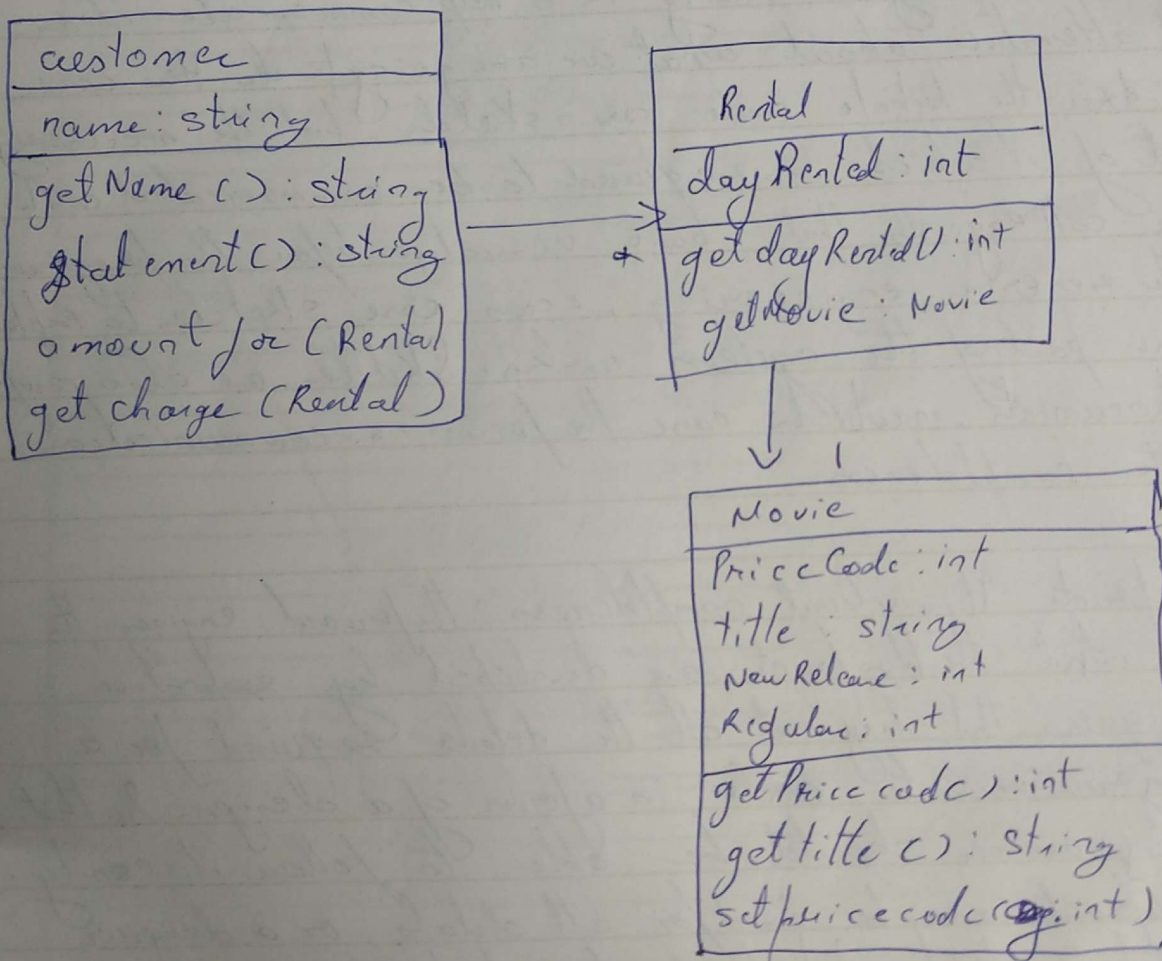 customer
name: string
getName (): string
statement(): string
amount for (Rental)
get charge (Rental)
Rental
dayRented: int
*
get dayRented(): int
getMovie: Movie
1
Movie
PriceCode: int
title: string
New Release: int
Regular: int
getPrice code(): int
get title (): string
setpricecode(: int)